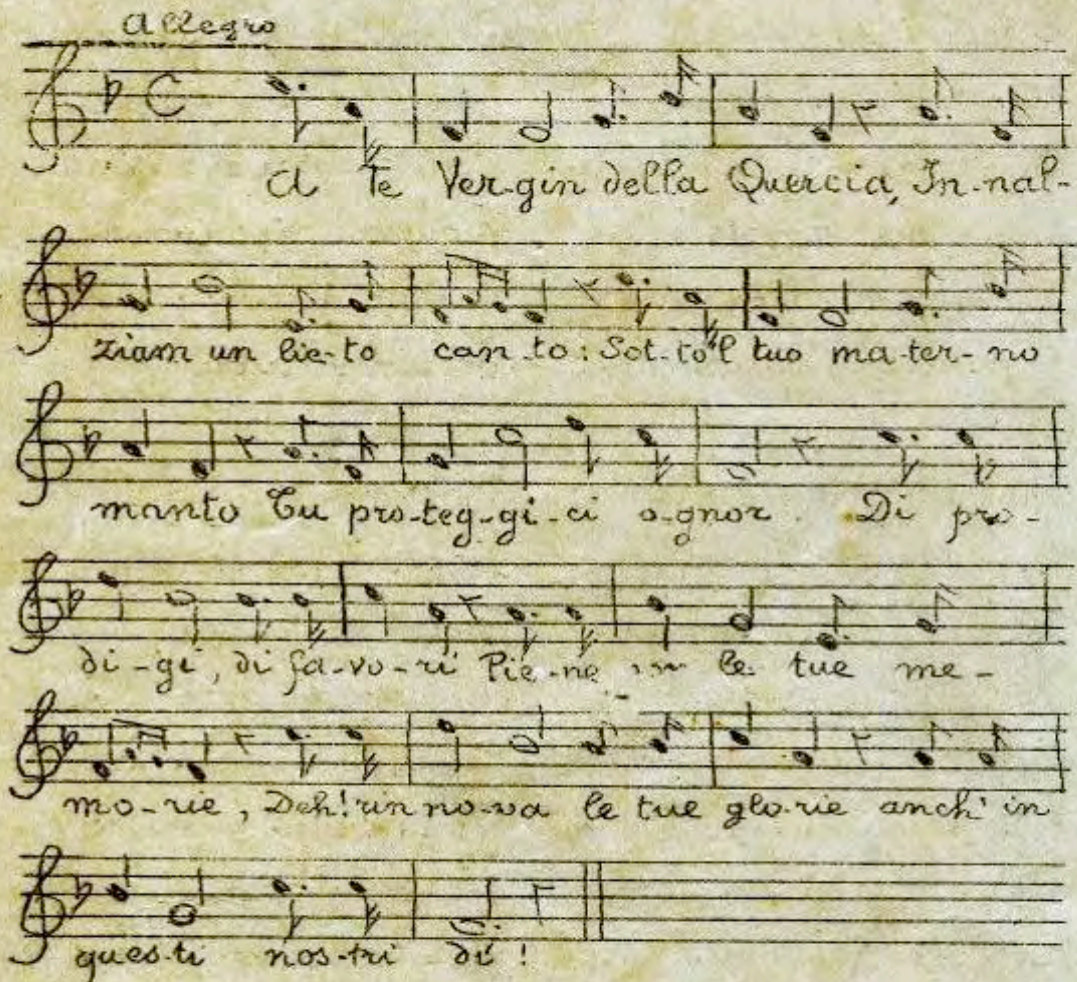 Allegro
A Te Ver-gin della Quercia, In-nal-
ziam un lie-to can-to: Sot-to'l tuo ma-ter-no
manto Tu pro-teg-gi-ci o-gnor. Di pro-
di-gi, di fa-vo-ri Pie-ne le tue me-
mo-rie, Deh! rin no-va le tue glo-rie anch' in
ques-ti nos-tri dì!